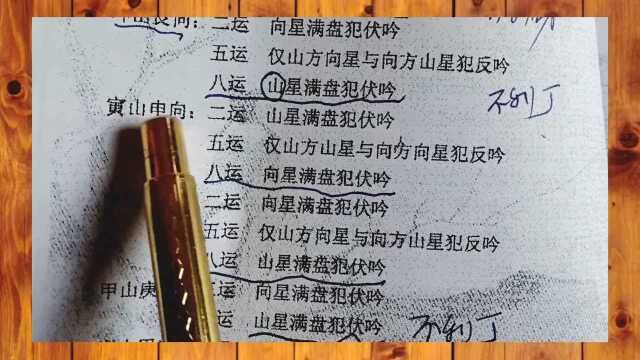 山艮向：二运 向星满盘犯伏吟
五运 仅山方向星与向方山星犯反吟
八运 山星满盘犯伏吟 不利丁
寅山申向：二运 山星满盘犯伏吟
五运 仅山方山星与向方向星犯反吟
八运 向星满盘犯伏吟
二运 向星满盘犯伏吟
五运 仅山方向星与向方山星犯反吟
八运 山星满盘犯伏吟
甲山庚 运 向星满盘犯伏吟
运 山星满盘犯伏吟 不利丁